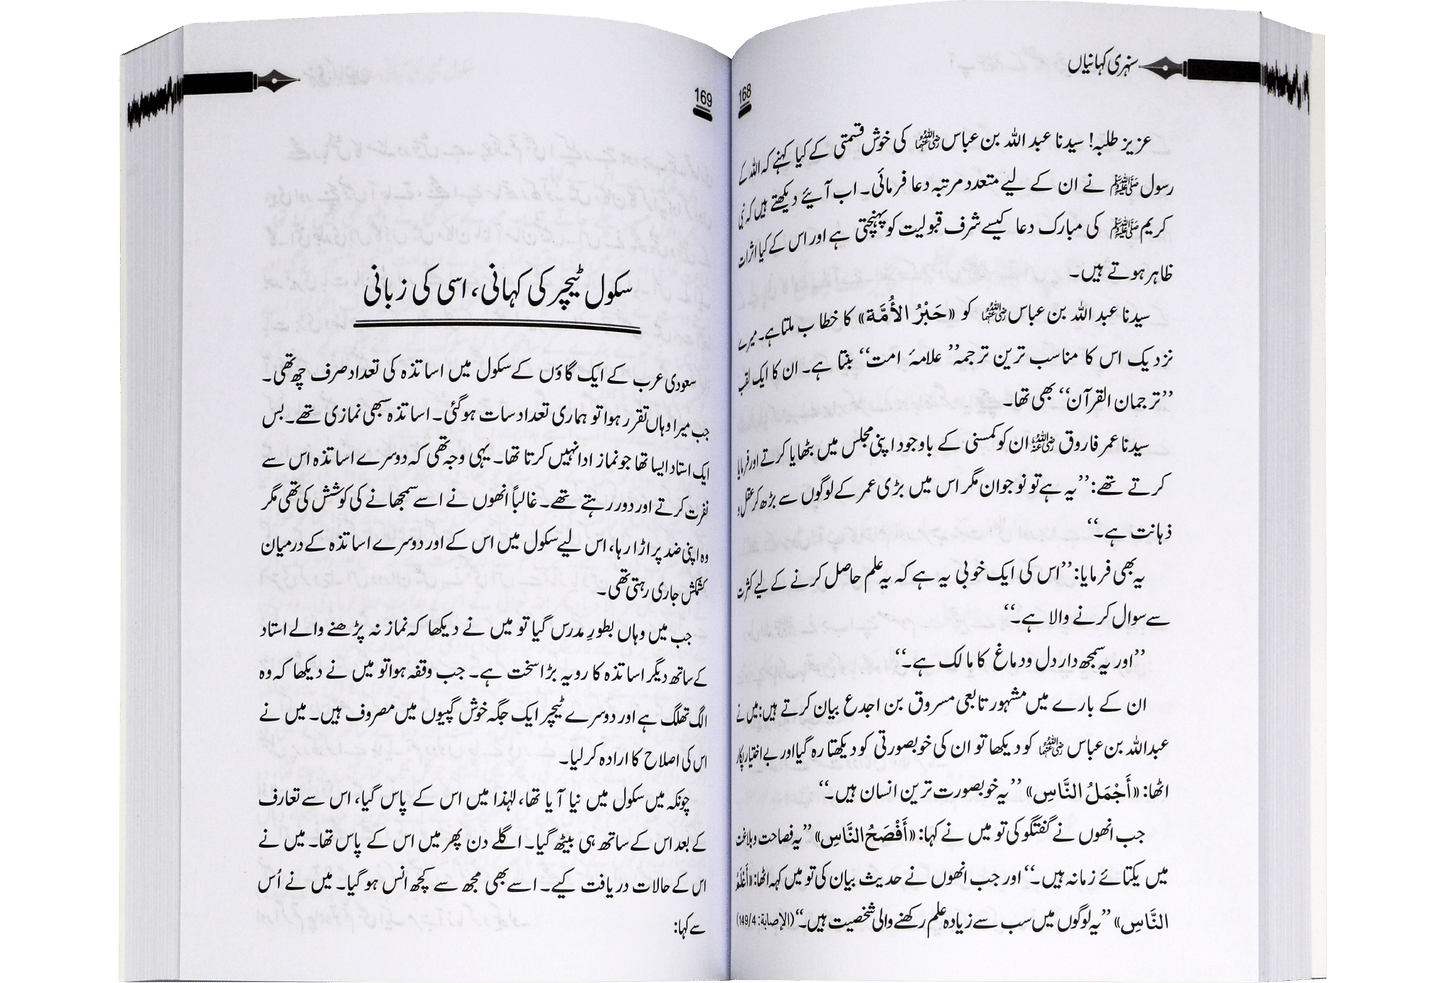 سنہری کہانیاں
168
عزیز طلبہ! سیدنا عبد اللہ بن عباس رضی اللہ عنہما کی خوش قسمتی کے کیا کہنے کہ اللہ کے
رسول ﷺ نے ان کے لیے متعدد مرتبہ دعا فرمائی۔ اب آئیے دیکھتے ہیں کہ نبی
کریم ﷺ کی مبارک دعا کیسے شرف قبولیت کو پہنچتی ہے اور اس کے کیا اثرات
ظاہر ہوتے ہیں۔
سیدنا عبد اللہ بن عباس رضی اللہ عنہما کو «حَبْرُ الأُمَّة» کا خطاب ملتا ہے۔ میرے
نزدیک اس کا مناسب ترین ترجمہ ’’علامۂ امت‘‘ بنتا ہے۔ ان کا ایک لقب
’’ترجمان القرآن‘‘ بھی تھا۔
سیدنا عمر فاروق رضی اللہ عنہ ان کو کمسنی کے باوجود اپنی مجلس میں بٹھایا کرتے اور فرمایا
کرتے تھے: ’’یہ ہے تو نوجوان مگر اس میں بڑی عمر کے لوگوں سے بڑھ کر عقل و
ذہانت ہے۔‘‘
یہ بھی فرمایا: ’’اس کی ایک خوبی یہ ہے کہ یہ علم حاصل کرنے کے لیے کثرت
سے سوال کرنے والا ہے۔‘‘
’’اور یہ سمجھ دار دل و دماغ کا مالک ہے۔‘‘
ان کے بارے میں مشہور تابعی مسروق بن اجدع بیان کرتے ہیں: میں نے
عبداللہ بن عباس رضی اللہ عنہما کو دیکھا تو ان کی خوبصورتی کو دیکھتا رہ گیا اور بے اختیار پکار
اٹھا: «أَجْمَلُ النَّاسِ» ’’یہ خوبصورت ترین انسان ہیں۔‘‘
جب انھوں نے گفتگو کی تو میں نے کہا: «أَفْصَحُ النَّاسِ» ’’یہ فصاحت و بلاغت
میں یکتائے زمانہ ہیں۔‘‘ اور جب انھوں نے حدیث بیان کی تو میں کہہ اٹھا: «أَعْلَمُ
النَّاسِ» ’’یہ لوگوں میں سب سے زیادہ علم رکھنے والی شخصیت ہیں۔‘‘ (الإصابة: 149/4)
169
سکول ٹیچر کی کہانی، اسی کی زبانی
سعودی عرب کے ایک گاؤں کے سکول میں اساتذہ کی تعداد صرف چھ تھی۔
جب میرا وہاں تقرر ہوا تو ہماری تعداد سات ہوگئی۔ اساتذہ سبھی نمازی تھے۔ بس
ایک استاد ایسا تھا جو نماز ادا نہیں کرتا تھا۔ یہی وجہ تھی کہ دوسرے اساتذہ اس سے
نفرت کرتے اور دور رہتے تھے۔ غالباً انھوں نے اسے سمجھانے کی کوشش کی تھی مگر
وہ اپنی ضد پر اڑا رہا، اس لیے سکول میں اس کے اور دوسرے اساتذہ کے درمیان
کشمکش جاری رہتی تھی۔
جب میں وہاں بطورِ مدرس گیا تو میں نے دیکھا کہ نماز نہ پڑھنے والے استاد
کے ساتھ دیگر اساتذہ کا رویہ بڑا سخت ہے۔ جب وقفہ ہوا تو میں نے دیکھا کہ وہ
الگ تھلگ ہے اور دوسرے ٹیچر ایک جگہ خوش گپیوں میں مصروف ہیں۔ میں نے
اس کی اصلاح کا ارادہ کر لیا۔
چونکہ میں سکول میں نیا آیا تھا، لہٰذا میں اس کے پاس گیا، اس سے تعارف
کے بعد اس کے ساتھ ہی بیٹھ گیا۔ اگلے دن پھر میں اس کے پاس تھا۔ میں نے
اس کے حالات دریافت کیے۔ اسے بھی مجھ سے کچھ انس ہو گیا۔ میں نے اُس
سے کہا: